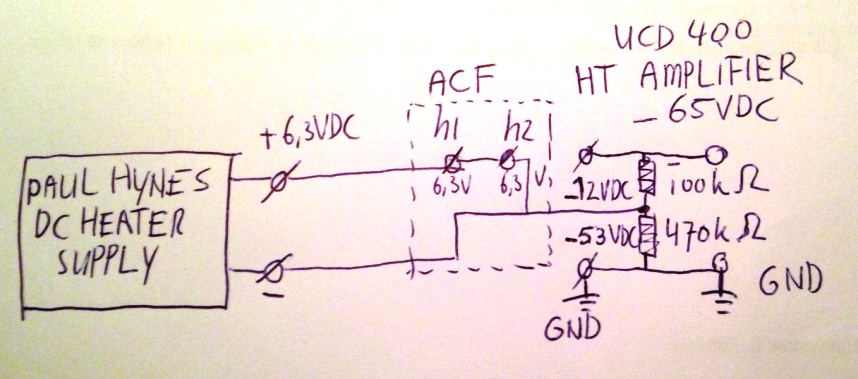 UCD 400
HT AMPLIFIER
- 65VDC
ACF
h1 h2
+6,3VDC
6,3V 6,3 V
PAUL HYNES
DC HEATER
SUPPLY
-
-12VDC
-
100k Ω
-53VDC
470k Ω
GND
GND